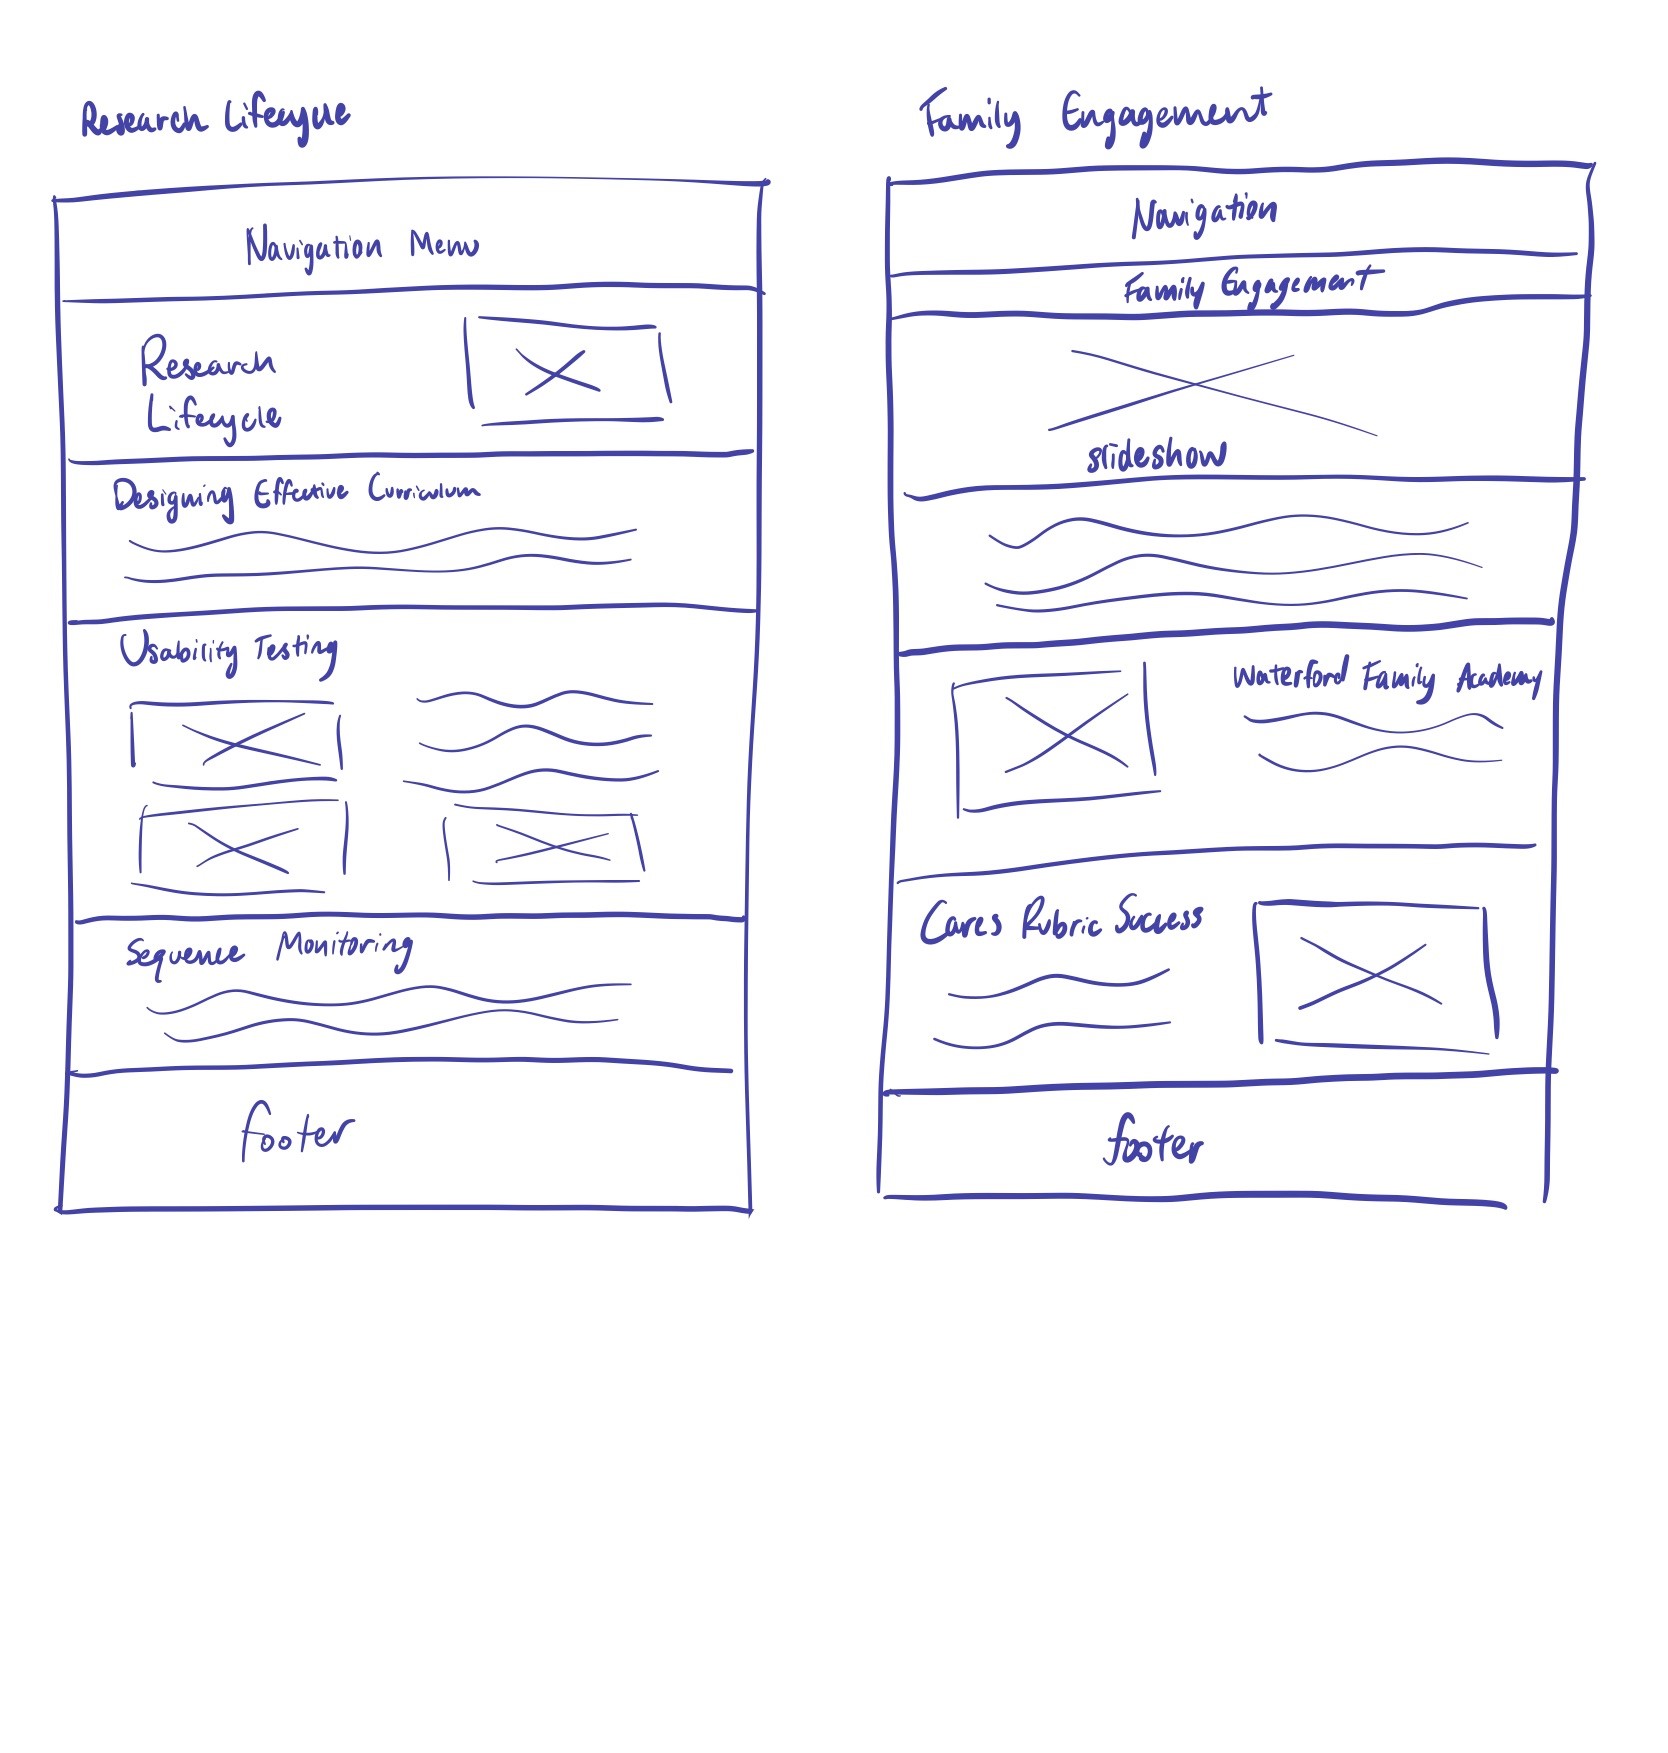 Research Lifecycle
Navigation Menu
Research
Lifecycle
Designing Effective Curriculum
Usability Testing
Sequence Monitoring
footer
Family Engagement
Navigation
Family Engagement
slideshow
Waterford Family Academy
Cares Rubric Success
footer